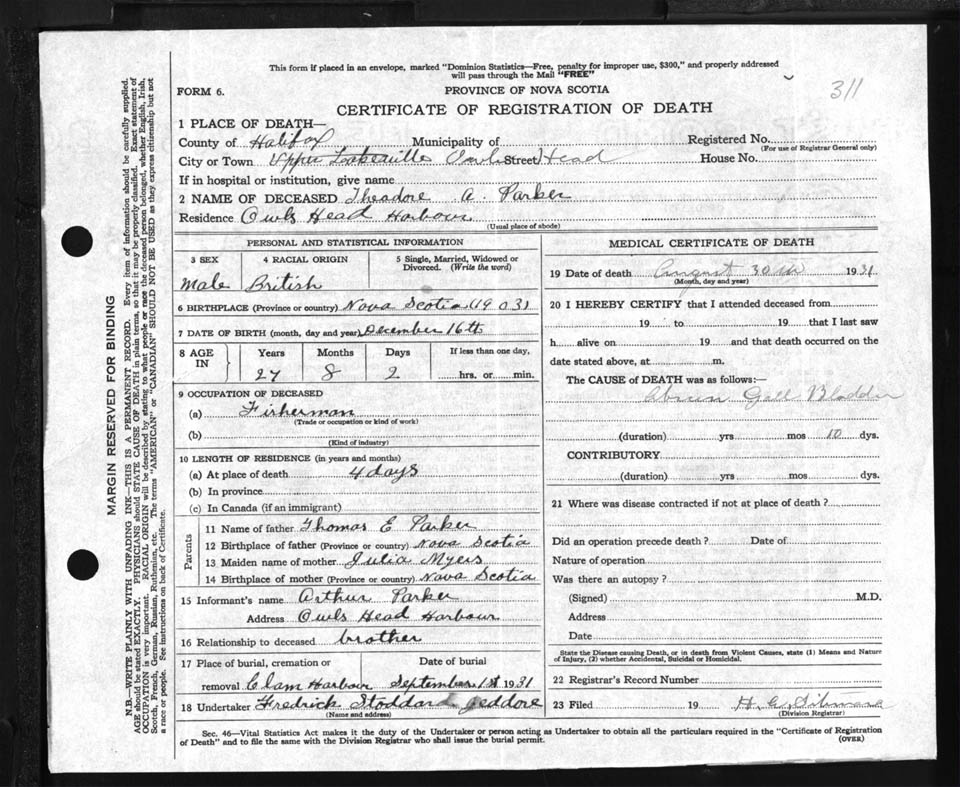 This form if placed in an envelope, marked "Dominion Statistics—Free, penalty for improper use, $300," and properly addressed
will pass through the Mail "FREE"
311
FORM 6.
PROVINCE OF NOVA SCOTIA
CERTIFICATE OF REGISTRATION OF DEATH
1 PLACE OF DEATH—
County of Halifax Municipality of Registered No.
(For use of Registrar General only)
City or Town Upper Lakeville Owls Street Head House No.
If in hospital or institution, give name
2 NAME OF DECEASED Theadore A. Parker
Residence Owls Head Harbour
(Usual place of abode)
PERSONAL AND STATISTICAL INFORMATION
3 SEX 4 RACIAL ORIGIN 5 Single, Married, Widowed or
Divorced. (Write the word)
Male British
6 BIRTHPLACE (Province or country) Nova Scotia (1903)
7 DATE OF BIRTH (month, day and year) December 16th
8 AGE IN Years Months Days If less than one day,
27 8 2 hrs. or min.
9 OCCUPATION OF DECEASED
(a) Fisherman
(Trade or occupation or kind of work)
(b)
(Kind of industry)
10 LENGTH OF RESIDENCE (in years and months)
(a) At place of death 4 days
(b) In province
(c) In Canada (if an immigrant)
Parents
11 Name of father Thomas E Parker
12 Birthplace of father (Province or country) Nova Scotia
13 Maiden name of mother Julia Myers
14 Birthplace of mother (Province or country) Nova Scotia
15 Informant's name Arthur Parker
Address Owls Head Harbour
16 Relationship to deceased brother
17 Place of burial, cremation or Date of burial
removal Clam Harbour September 1st 1931
18 Undertaker Fredrick Stoddard Jeddore
(Name and address)
MEDICAL CERTIFICATE OF DEATH
19 Date of death August 30th 1931
(Month, day and year)
20 I HEREBY CERTIFY that I attended deceased from
19 to 19 that I last saw
h alive on 19 and that death occurred on the
date stated above, at m.
The CAUSE of DEATH was as follows:—
Gall Bladder
(duration) yrs mos 10 dys.
CONTRIBUTORY
(duration) yrs mos dys.
21 Where was disease contracted if not at place of death?
Did an operation precede death? Date of
Nature of operation
Was there an autopsy?
(Signed) M.D.
Address
Date
State the Disease causing Death, or in death from Violent Causes, state (1) Means and Nature
of Injury, (2) whether Accidental, Suicidal or Homicidal.
22 Registrar's Record Number
23 Filed 19
(Division Registrar)
Sec. 46—Vital Statistics Act makes it the duty of the Undertaker or person acting as Undertaker to obtain all the particulars required in the "Certificate of Registration
of Death" and to file the same with the Division Registrar who shall issue the burial permit. (OVER)
MARGIN RESERVED FOR BINDING
N.B.—WRITE PLAINLY WITH UNFADING INK—THIS IS A PERMANENT RECORD. Every item of information should be carefully supplied.
AGE should be stated EXACTLY. PHYSICIANS should STATE CAUSE OF DEATH in plain terms, so that it may be properly classified. Exact statement of
OCCUPATION is very important. RACIAL ORIGIN will be described by stating to what people or race the deceased person belonged, whether English, Irish,
Scotch, French, German, Russian, Ruthenian, etc. The terms "AMERICAN" or "CANADIAN" SHOULD NOT BE USED as they express citizenship but not
a race or people. See instructions on back of Certificate.